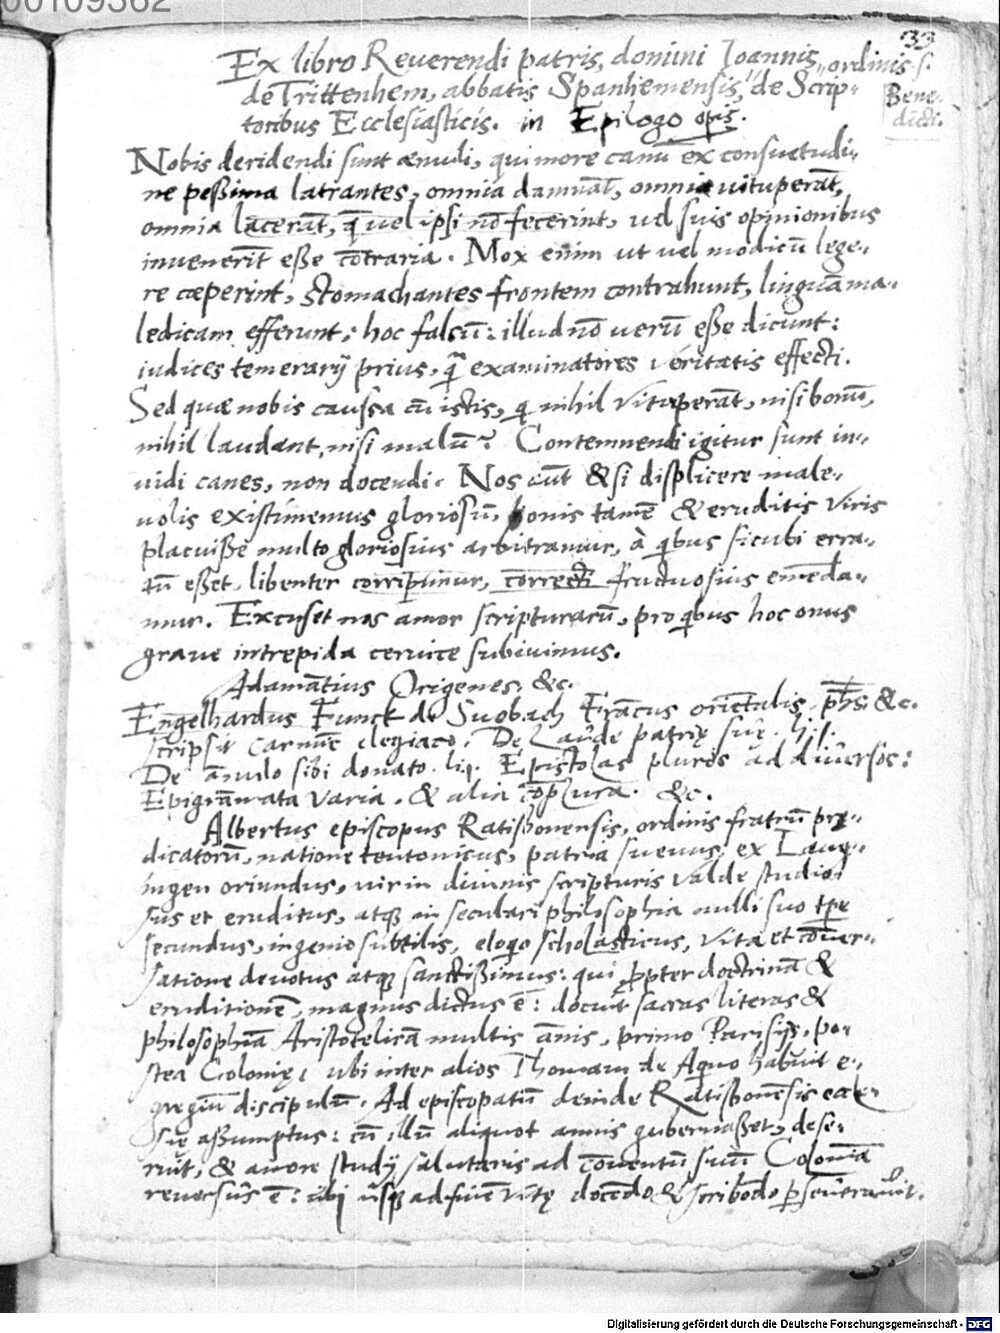 00109362
33
Ex libro Reuerendi patris, domini Joannis, ordinis s.
de Trittenhem, abbatis Spanhemensis, de Scrip-
Bene-
dicti.
toribus Ecclesiasticis. in Epilogo opis.
Nobis deridendi sunt æmuli, qui more canū ex consuetudi-
ne peßima latrantes, omnia damnāt, omnia uituperāt,
omnia lacerāt, q̄ uel ipsi nō fecerint, uel suis opinionibus
inuenerīt eße cōtraria. Mox enim ut uel modicū lege-
re cœperint, stomachantes frontem contrahunt, linguā ma-
ledicam efferunt; hoc falsū: illud nō uerū eße dicunt:
iudices temerarij prius, q̄ examinatores veritatis effecti.
Sed quæ nobis caussa cū istis, q̄ nihil vituperāt, nisi bonū,
nihil laudant, nisi malū? Contemnendi igitur sunt in-
uidi canes, non docendi. Nos aūt & si displicere male-
uolis existimemus gloriosū, bonis tamē & eruditis viris
placuiße multo gloriosius arbitramur, à q̄bus sicubi erra-
tū eßet, libenter corripimur, correcti fructuosius emēda-
mur. Excuset nos amor scripturarū, pro q̄bus hoc onus
graue intrepida ceruice subiuimus.
Adamātius Origenes, &c.
Engelhardus Funck de Suobach Frācus oriētalis, phs &c.
scripsit carmīe elegiaco. De Laude patrię suę. li j.
De ānulo sibi donato. li j. Epistolas plures ad diuersos:
Epigrāmata varia. & alia cōplura. &c.
Albertus episcopus Ratisbonensis, ordinis fratrū prę-
dicatorū, natione teutonicus, patria sueuus, ex Laug-
ingen oriundus, uir in diuinis scripturis valde studio-
sus et eruditus, atq; in seculari philosophia nulli suo tpe
secundus, ingenio subtilis, eloq̄o scholasticus, vita et cōuer-
satione deuotus atq; sanctißimus: qui ꝓpter doctrinā &
eruditionē, magnus dictus ē: docuit sacras literas &
philosophiā Aristotelicā multis ānis, primo Parisijs, po-
stea Colonię, ubi inter alios Thomam de Aquo habuit e-
gregiū discipulū. Ad episcopatū deinde Ratisbonēsis eccle-
się aßumptus: cū illū aliquot annis gubernaßet, dese-
ruit, & amore studij salutaris ad cōuentū suū Coloniā
reuersus ē: ubi usq; ad finē vitę docēdo & scribēdo ꝑseuerauit.
Digitalisierung gefördert durch die Deutsche Forschungsgemeinschaft - DFG